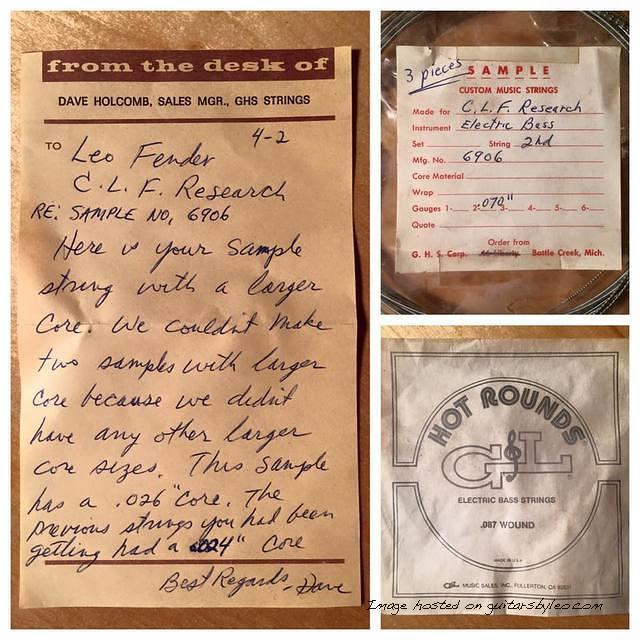 from the desk of
DAVE HOLCOMB, SALES MGR., GHS STRINGS
TO Leo Fender 4-2
C.L.F. Research
RE: SAMPLE NO, 6906
Here is your sample
string with a larger
core. We couldn't make
two samples with larger
core because we didn't
have any other larger
core sizes. This sample
has a .026" core. The
previous strings you had been
getting had a .024" core
Best Regards, Dave
3 pieces SAMPLE
CUSTOM MUSIC STRINGS
Made for C.L.F. Research
Instrument Electric Bass
Set String 2nd
Mfg. No. 6906
Core Material
Wrap
Gauges 1- 2- .070" 3- 4- 5- 6-
Quote
Order from
G. H. S. Corp. Battle Creek, Mich.
HOT ROUNDS
G&L
ELECTRIC BASS STRINGS
.087 WOUND
MADE IN U.S.A
G&L MUSIC SALES, INC., FULLERTON, CA
Image hosted on guitarsbyleo.com